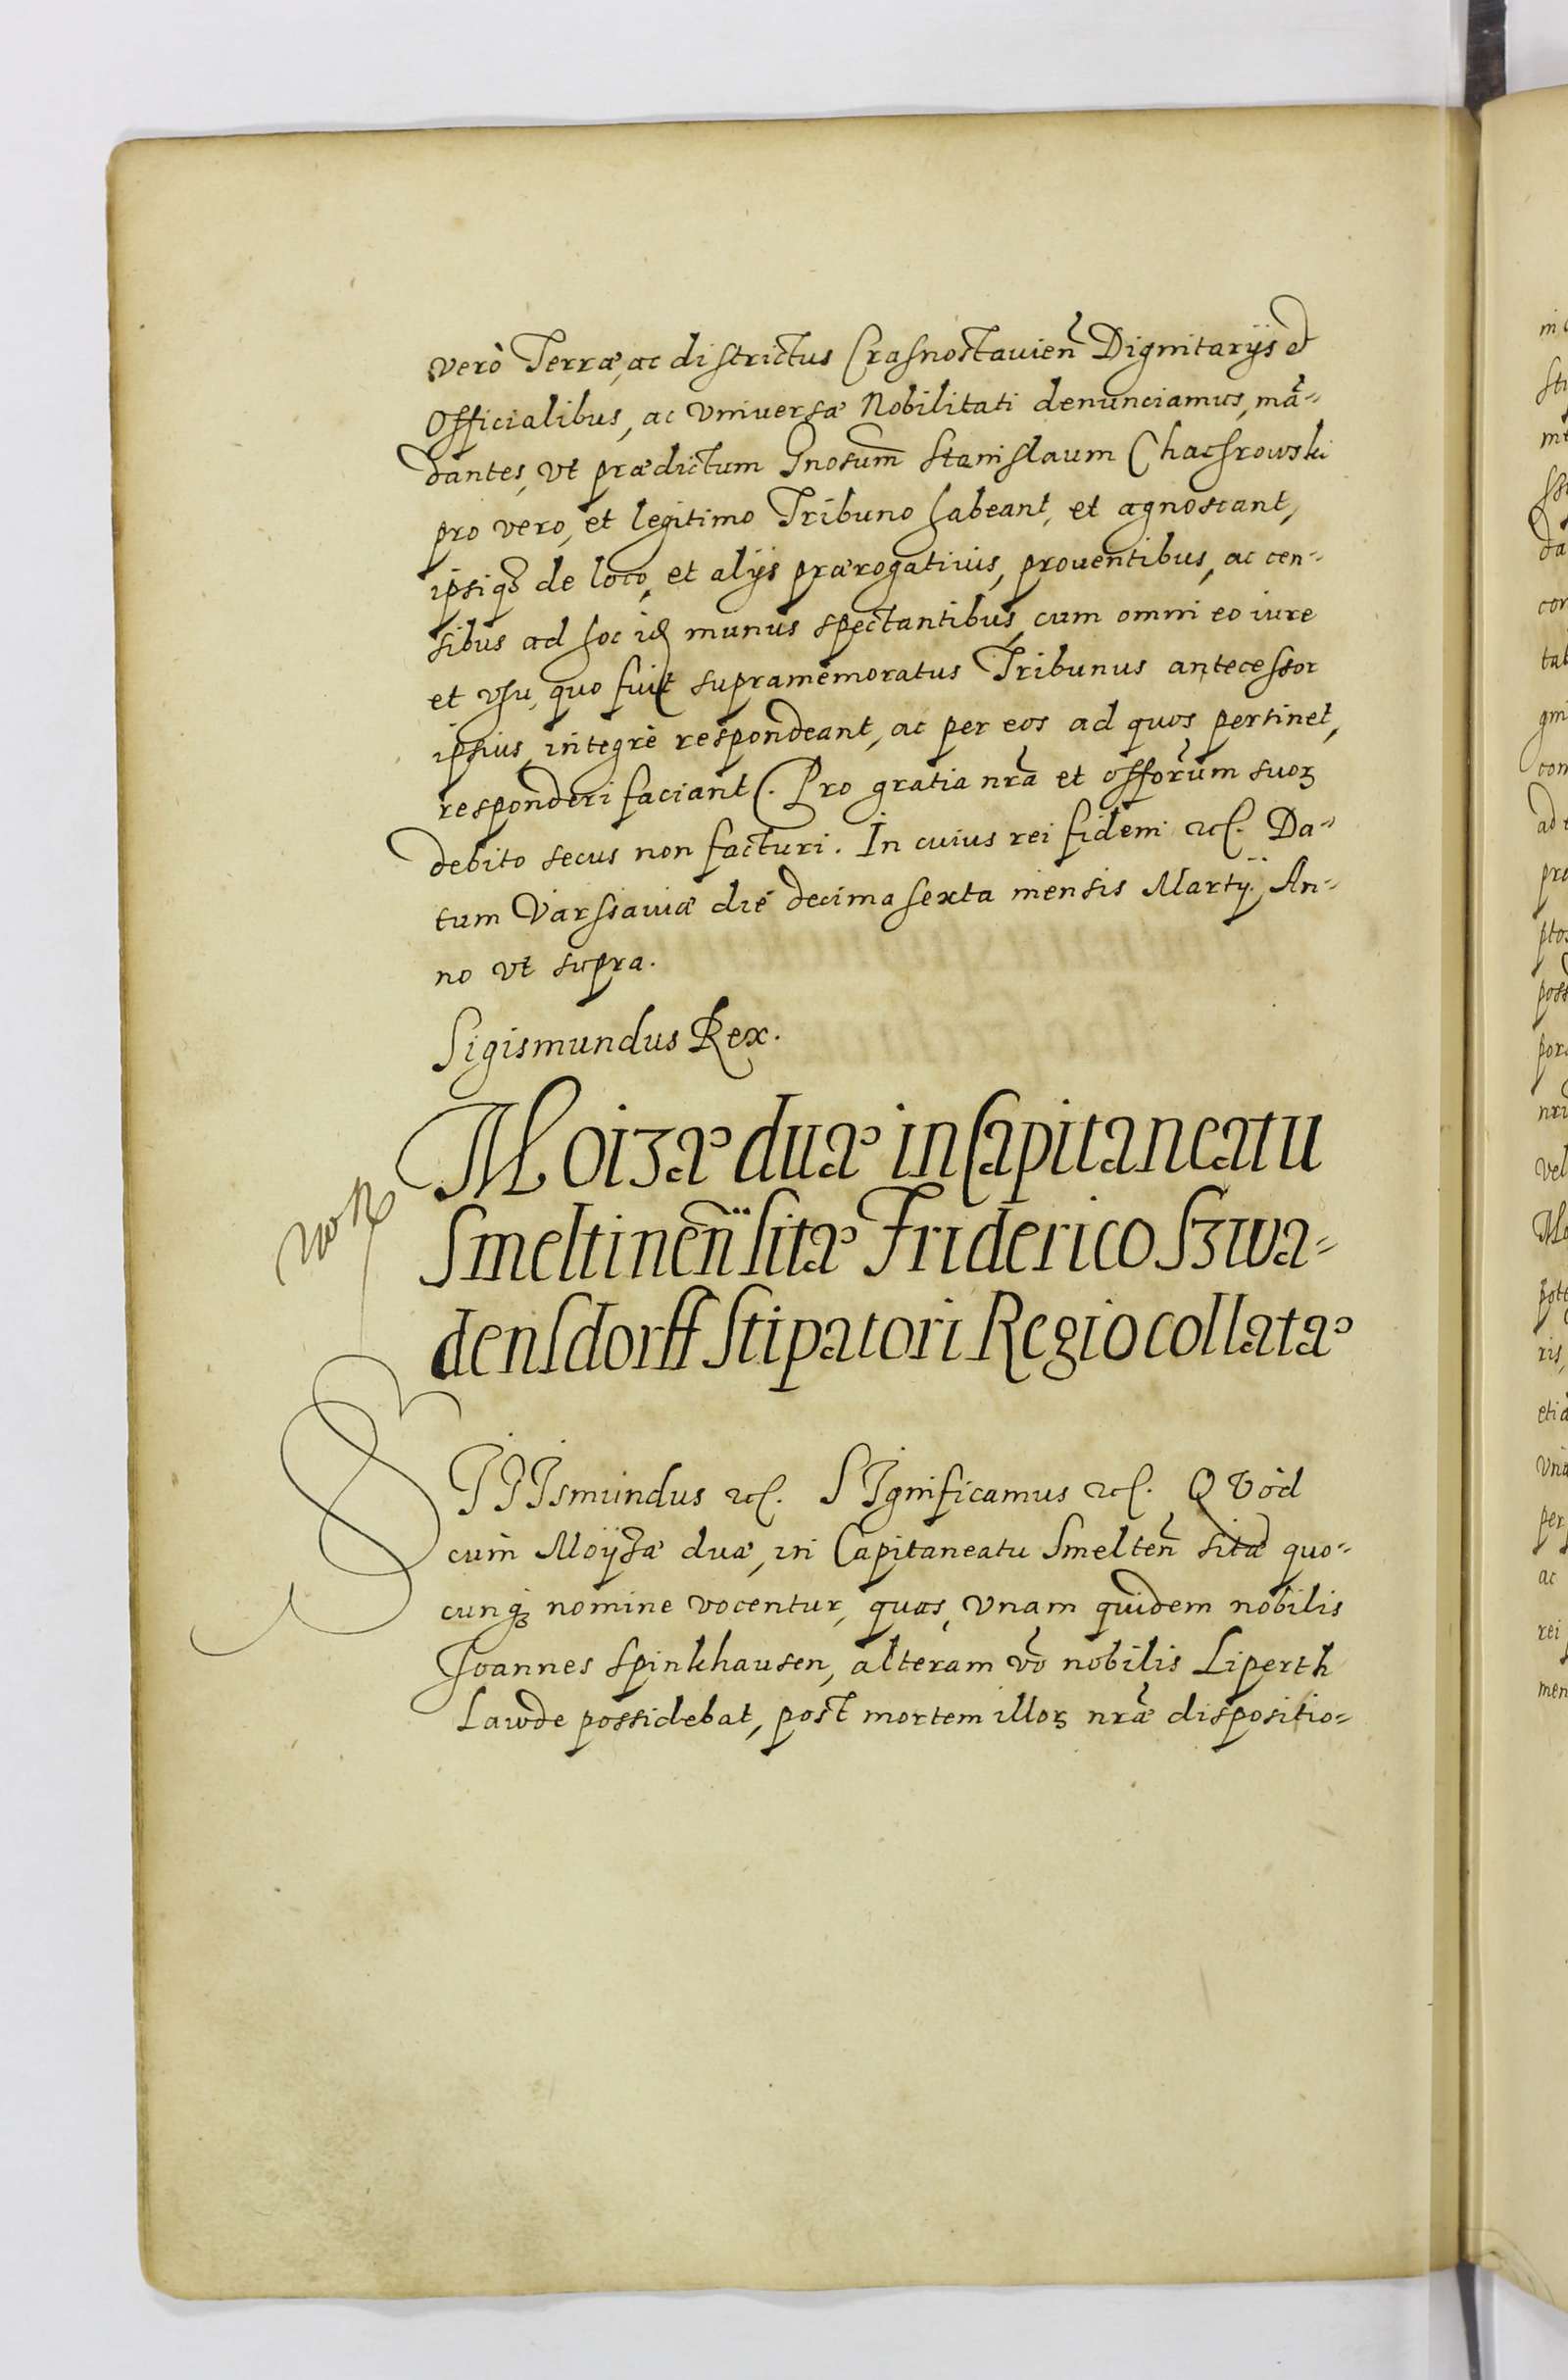 verò Terræ, ac districtus Crasnostauien̄ Dignitarijs et
Officialibus, ac vniuersæ Nobilitati denunciamus, mā-
dantes, vt prædictum Gnosum̄ Stanislaum
pro vero, et legitimo Tribuno habeant, et agnoscant,
ipsiqȝ de loco, et alijs prærogatiuis, prouentibus, ac cen-
sibus ad hoc munus spectantibus, cum omni eo iure
et vsu, quo fuit supramemoratus Tribunus antecessor
ipsius, integrè respondeant, ac per eos ad quos pertinet,
responderi faciant. Pro gratia nr̄a et offōrum suoꝝ
debito secus non facturi. In cuius rei fidem etc. Da-
tum Varsauiæ die decima sexta mensis Martij. An-
no vt supra.
Sigismundus Rex.
Moizæ duæ in Capitaneatu
Smeltinen̄ sitæ Friderico Szwa-
densdorff Stipatori Regio collatæ
SIGIsmundus etc. SIgnificamus etc. QVòd
cùm Moyzæ duæ, in Capitaneatu Smelten̄ sitæ quo-
cunqȝ nomine vocentur, quas, vnam quidem nobilis
Joannes Spinkhausen, alteram vō nobilis Liperth
Lawde possidebat, post mortem illoꝝ nr̄æ dispositio-